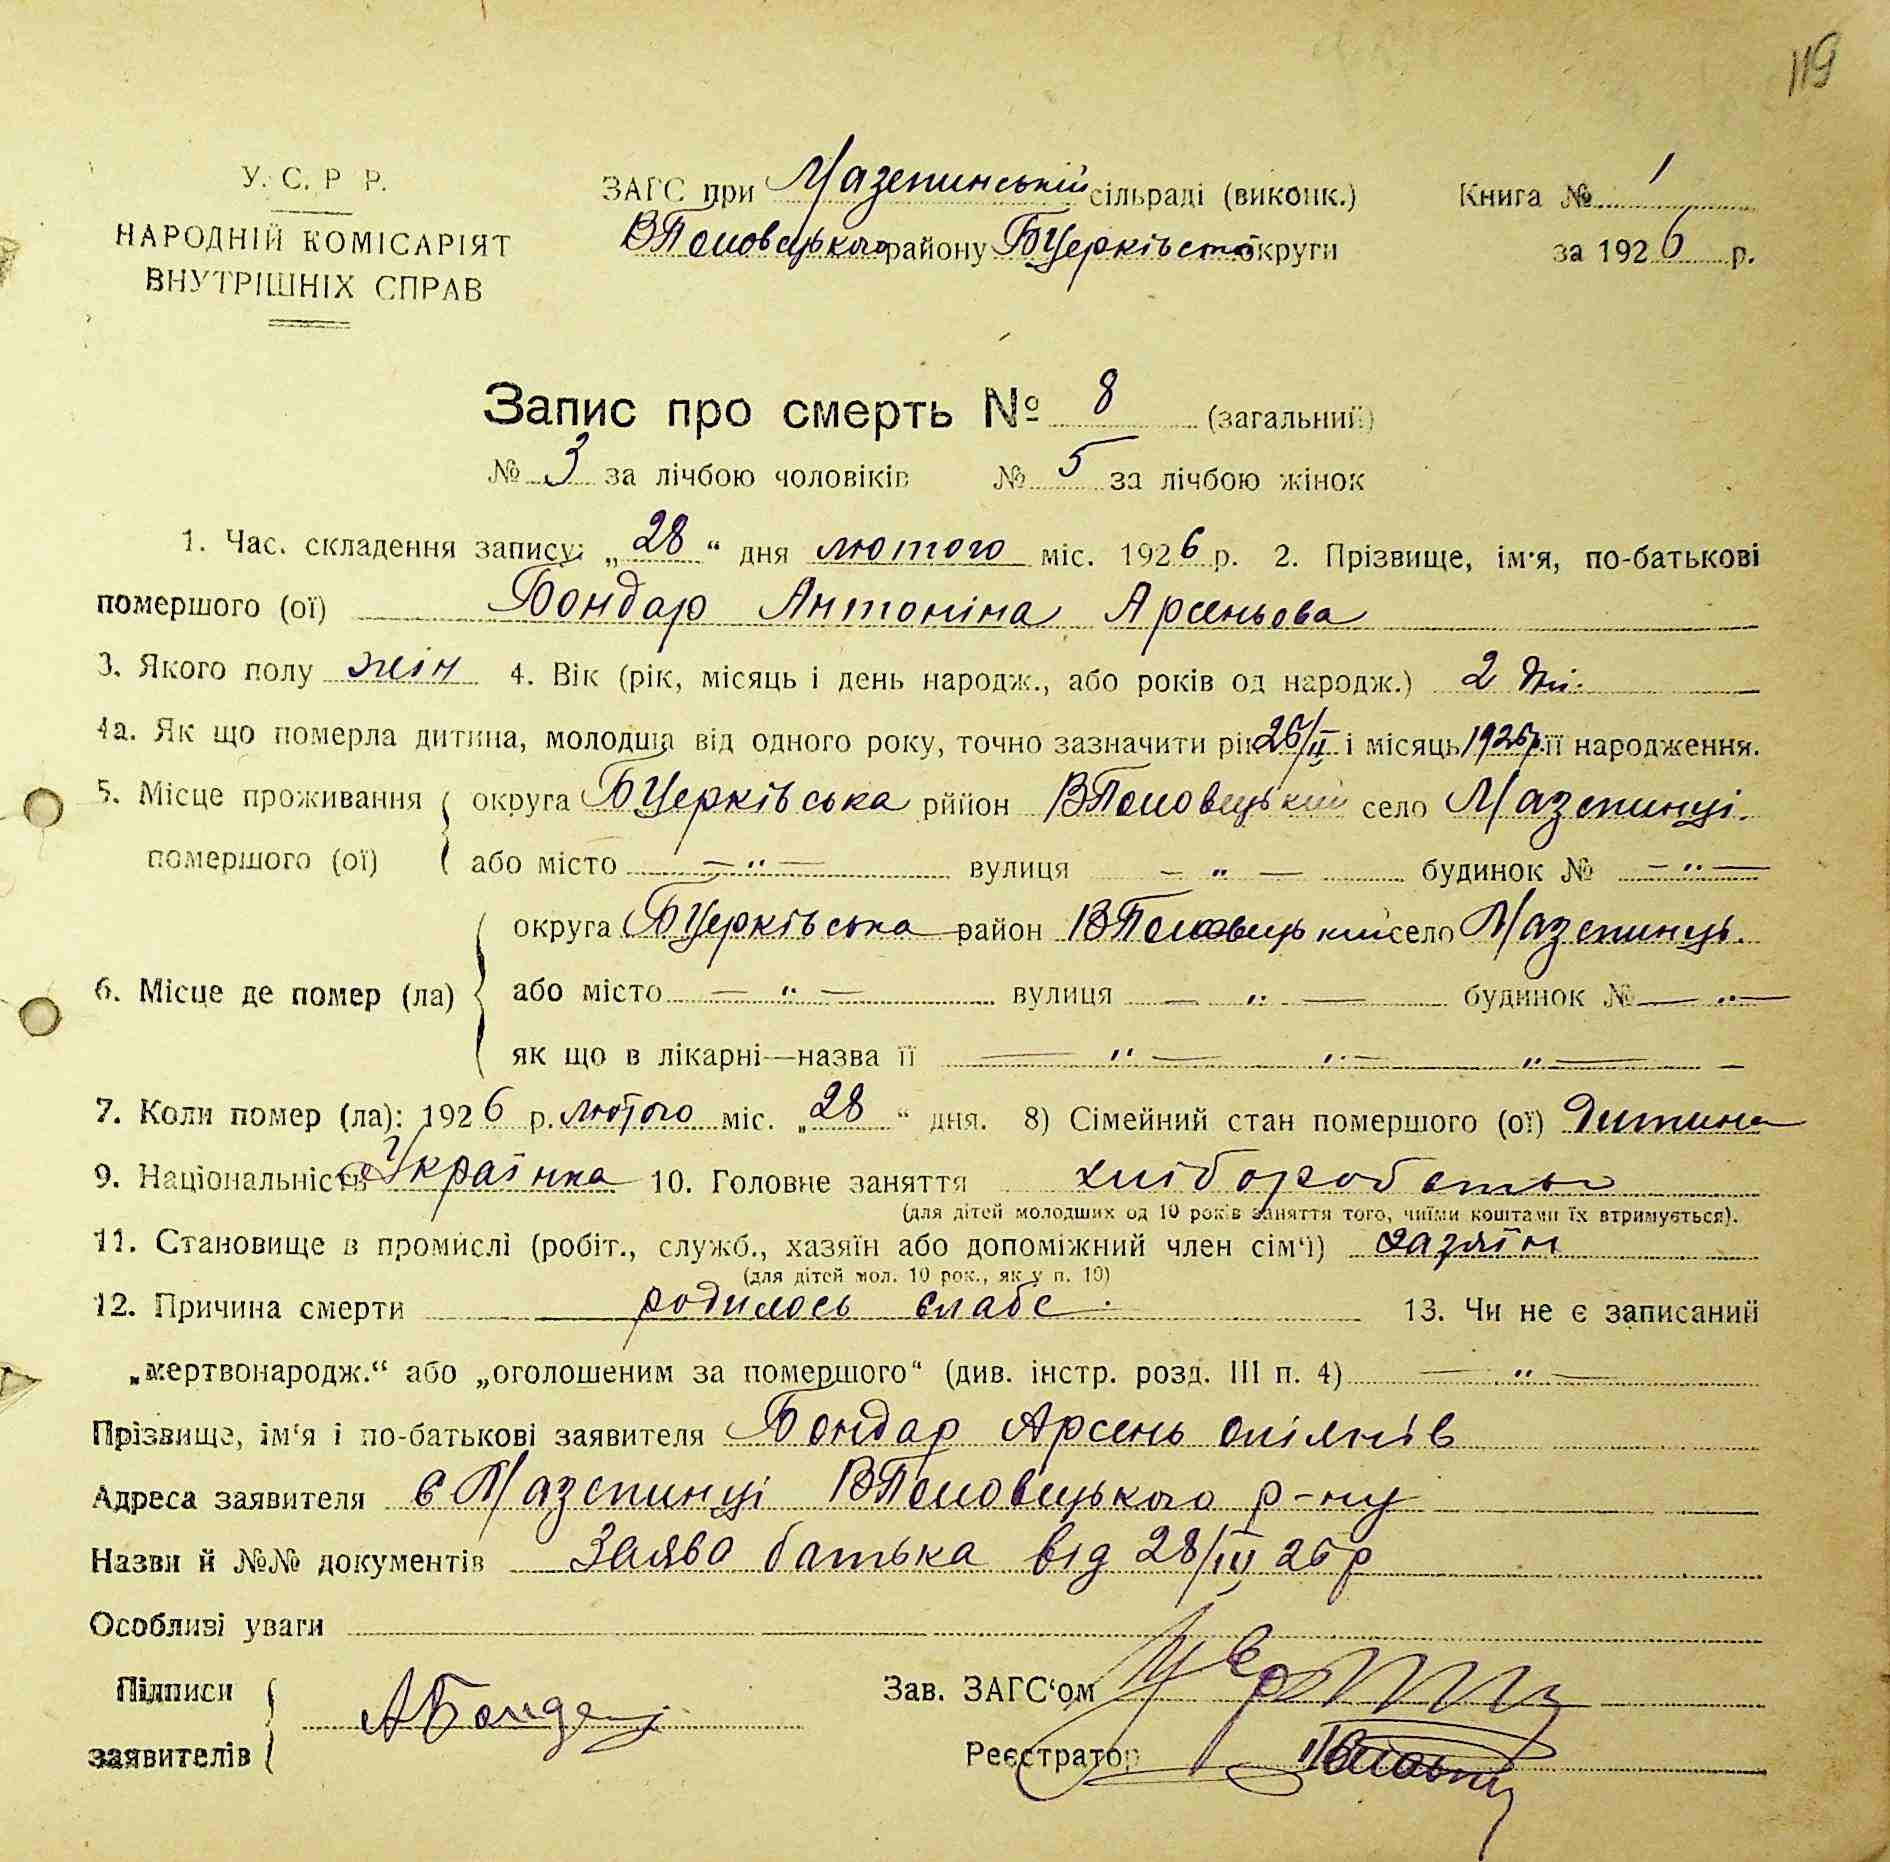 119
У. С. Р Р.
НАРОДНІЙ КОМІСАРІЯТ
ВНУТРІШНІХ СПРАВ
ЗАГС при Мазепинській сільраді (виконк.) Книга № 1
ВПоловецького району БЦерківської округи за 1926 р.
Запис про смерть № 8 (загальний)
№ 3 за лічбою чоловіків № 5 за лічбою жінок
1. Час. складення запису: „28“ дня лютого міс. 1926 р. 2. Прізвище, ім'я, по-батькові
помершого (ої) Бондар Антоніна Арсеньова
3. Якого полу жін 4. Вік (рік, місяць і день народж., або років од народж.) 2 дні.
4а. Як що померла дитина, молодша від одного року, точно зазначити рік 26/II і місяць 1926р. її народження.
5. Місце проживання округа БЦерківська рййон ВПоловецький село Мазепинці.
помершого (ої) або місто — „ — вулиця — „ — будинок № — „ —
6. Місце де помер (ла) округа БЦерківська район ВПоловецький село Мазепинць.
або місто — „ — вулиця — „ — будинок № — „ —
як що в лікарні—назва її — „ — „ — „ —
7. Коли помер (ла): 1926 р. лютого міс. „28“ дня. 8) Сімейний стан помершого (ої) Дитина
9. Національність Українка 10. Головне заняття хліборобство
(для дітей молодших од 10 років заняття того, чиїми коштами їх втримується).
11. Становище в промислі (робіт., служб., хазяїн або допоміжний член сім'ї) хазяїн
(для дітей мол. 10 рок., як у п. 10)
12. Причина смерти родилось слабе. 13. Чи не є записаний
„мертвонародж.“ або „оголошеним за помершого“ (див. інстр. розд. III п. 4) — „ —
Прізвище, ім'я і по-батькові заявителя Бондар Арсень
Адреса заявителя с Мазепинці ВПоловецького р-ну
Назви й №№ документів Заява батька від 28/III 26р
Особливі уваги
Підписи
заявителів АБондар
Зав. ЗАГС'ом
Реєстратор